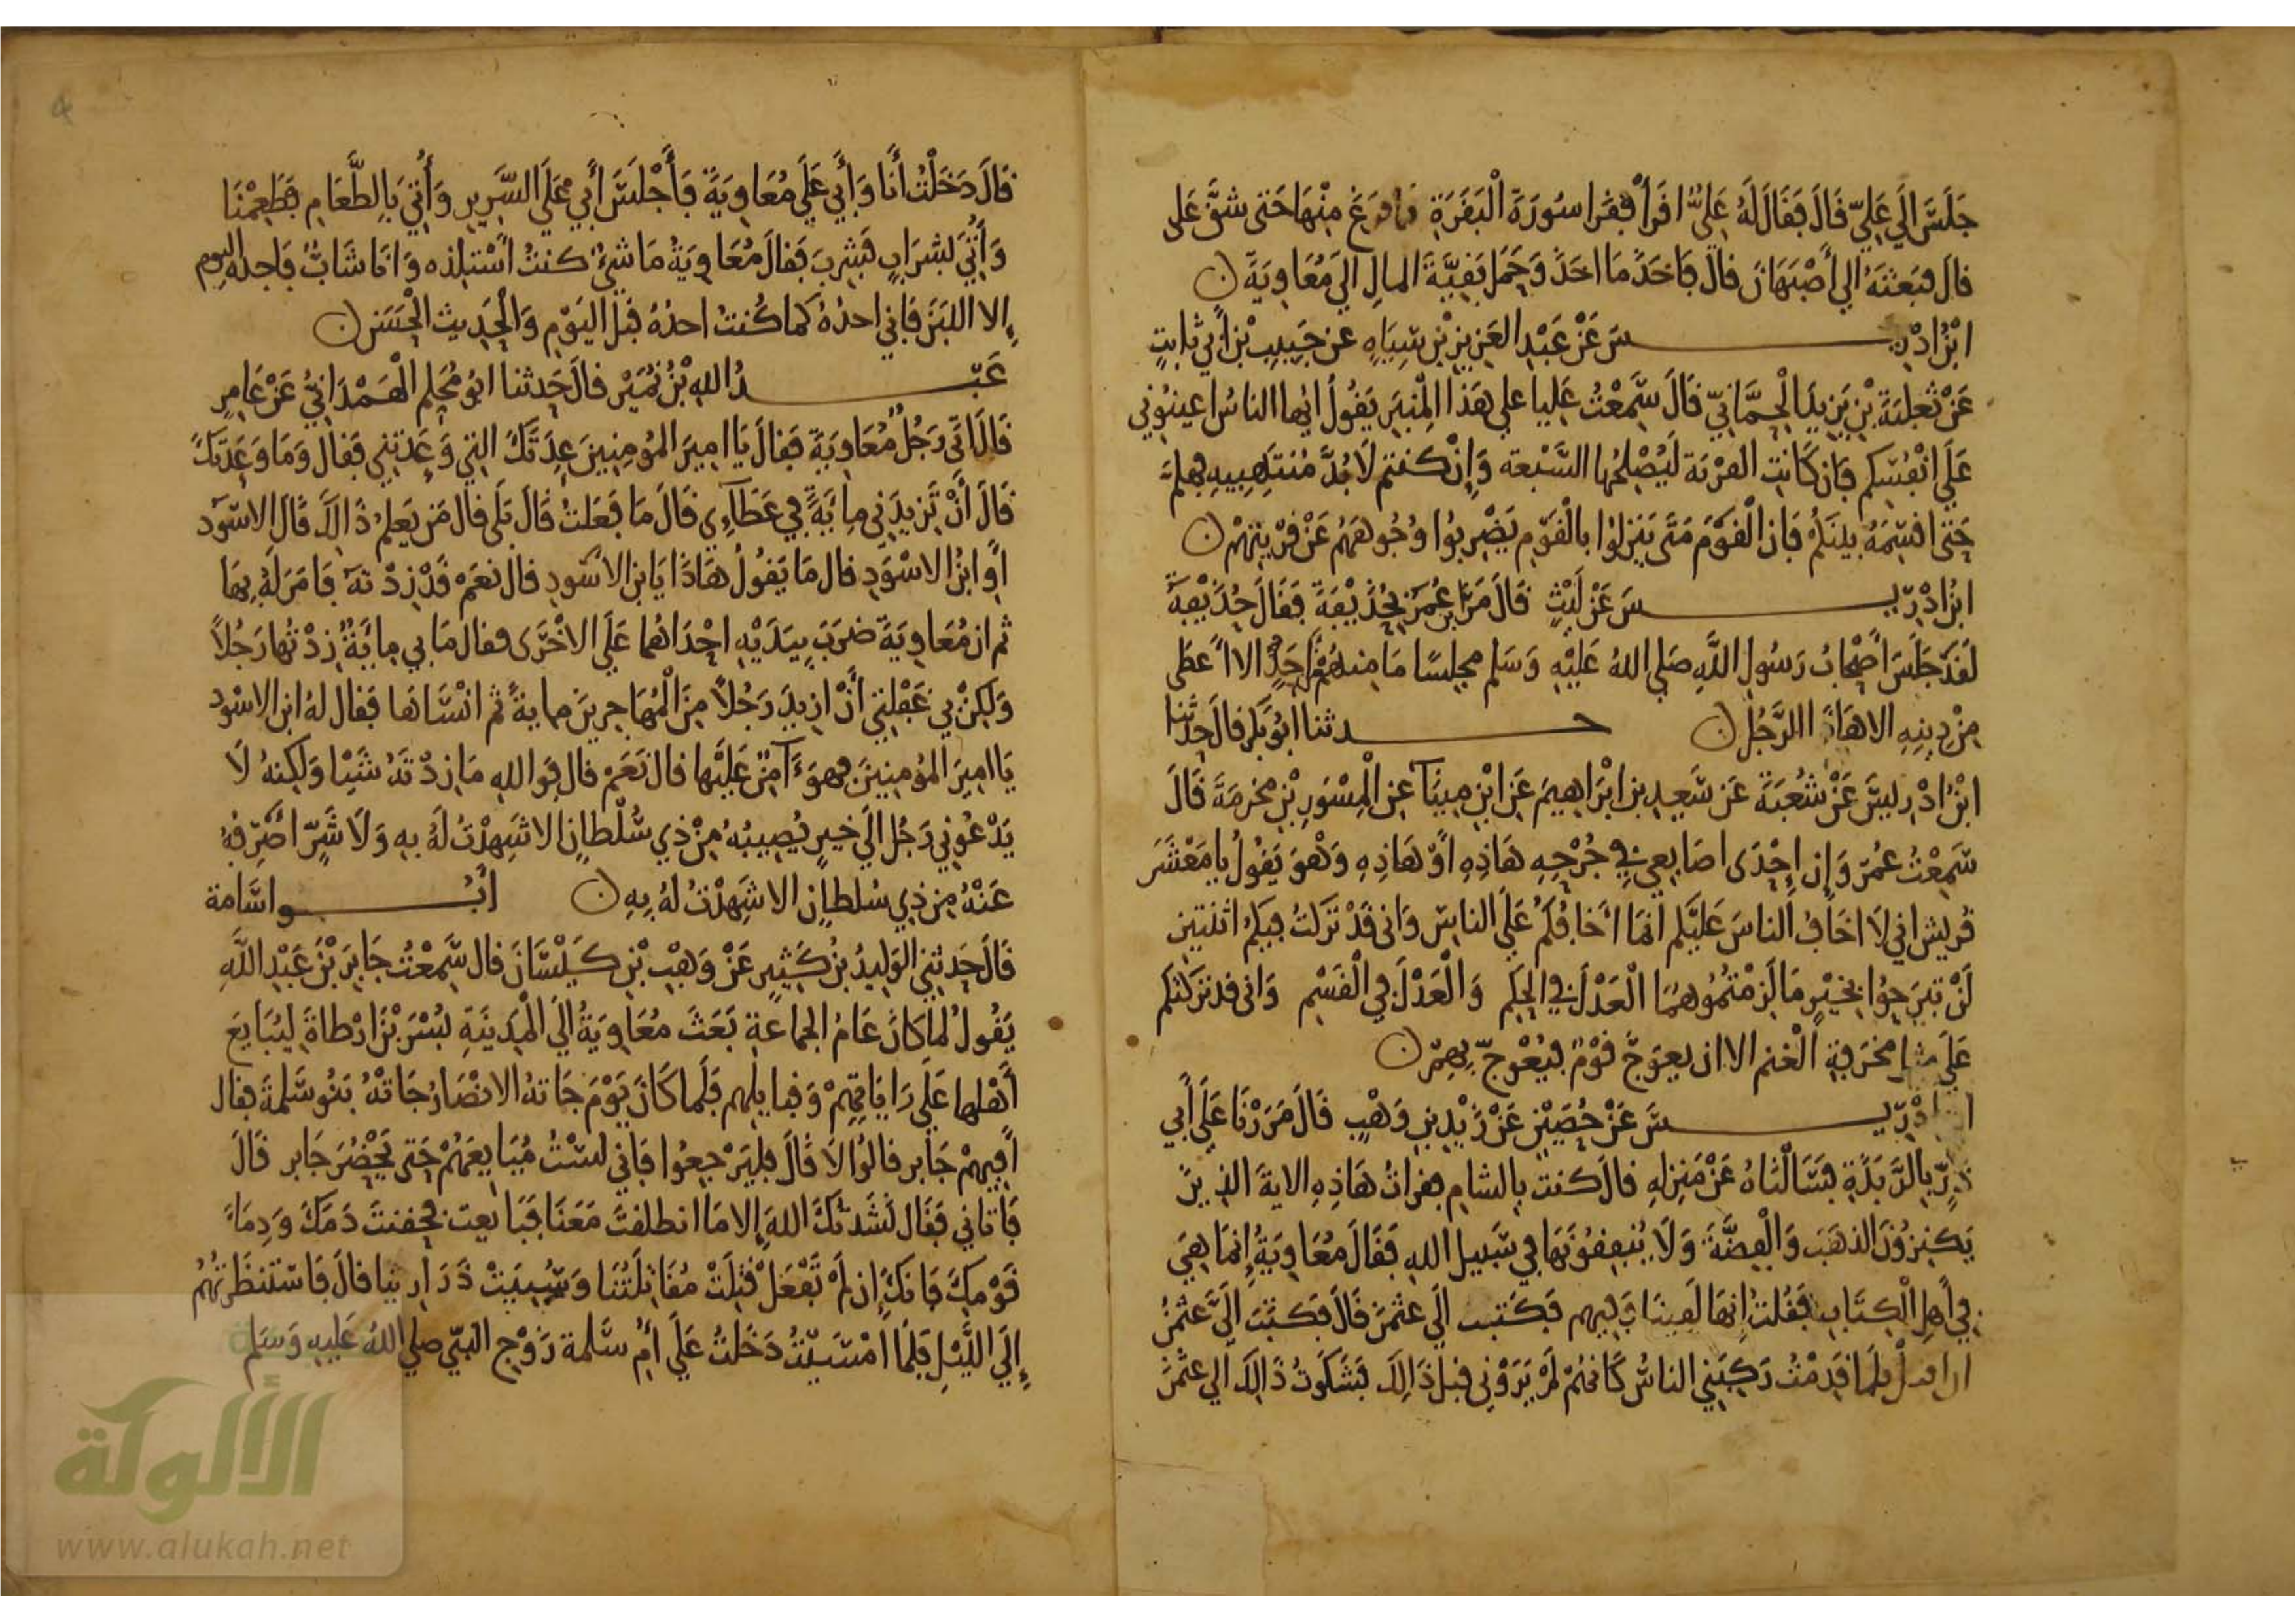 جَلَسَ إلَى عَلِيّ قَالَ فَقَالَ لَهُ عَلِيٌّ اقْرَأْ فقرا سُورَةَ الْبَقَرَةِ فما فرغ مِنْهَا حَتى شقَّ عَلى
قال فبَعَثَهُ الي أَصْبَهَانَ قال فَاخَذَ مَا اخَذَ وَحَمَلَ بَقيَّةَ المالِ الي مُعَاوِيَةَ ن
ابْنُ ادْرِيسَ عَنْ عَبْدِ العَزِيزِ بْنِ سِيَاهٍ عن حَبِيبِ بْنِ أَبِي ثابتٍ
عَنْ ثعلبَةَ بْنِ يَزِيدَ الْحِمَّانِيِّ قَالَ سَمِعْتُ عَليا علي هَذَا الْمِنْبَرِ يَقُولُ ايها الناسُ اعينُونِي
عَلَى انْفُسِكم فَإن كَانتِ القَرْيَة ليُصْلِحُها السَّبْعة وَإِنْ كنتم لَا بُدَّ مُنتَهِبِيهِ فهلمَّ
حَتى اقسِمَهُ بينَكُمْ فَإن الْقَوْمَ مَتَى يَنزلُوا بالْقَوْم يَضْربُوا وُجُوههَمُ عَنْ قرْيَتِهْم ن
ابْنُ ادْرِيسَ عَنْ لَيْثٍ قَالَ مَرَّ ابن عُمَرَ بِحُذَيْفَةَ فَقَالَ حُذَيْفَةُ
لَقَد جَلَسَ أَصْحَابُ رَسُولِ اللَّهِ صَلي اللهُ عَلَيْهِ وَسَلم مجلِسًا مَا منهُمْ مِنْ احَدٍ الا اعطَى
مِنْ دِينِهِ الا هَاذَا الرَّجُلُ ن حدثنا ابُو بَكر قالَ حَدَّثَنا
ابْنُ ادْرِيسَ عَنْ شُعْبَةَ عَن سَعِدِ بن ابْرَاهِيمَ عَنِ ابْنِ مِينَآ عَنِ الْمِسْوَرِ بْنِ مخرمَةَ قَالَ
سَمِعْتُ عُمَرَ وَإن إِحْدَى اصَابِعِي في جُرْحِهِ هَاذِهِ اوْ هَاذِهِ وَهْوَ يَقُولُ يا مَعْشَرَ
قُرَيشٍ اني لَا اخَافُ الناسَ عَلَيْكم انمَا اخَافُكُمْ عَلَى الناسِ وَاني قَدْ تَرَكتُ فيكُمُ اثنَتينِ
لَنْ تبرَحُوا بِخَيْرٍ مَا لَزِمْتُمُوهُمَا الْعَدْلَ في الحكمِ وَالْعَدْلَ في الْقَسْمِ وَاني قد تَركتكم
عَلَى مثل مخرَفةِ الْغنم الا ان يعوَجَّ قوْمٌ فيُعْوجّ بهِمْ ن
ابن ادْرِيسَ عَنْ حُصَيْنٍ عَنْ زَيْدِ بنِ وَهْبٍ قَالَ مَرَرْنَا عَلَى أَبِي
ذرّ بِالرَّبَذَةِ فَسَالْنَاهُ عَنْ مَنزِلِهِ قالَ كنتُ بِالشام فقراتُ هَاذِهِ الايةَ الذِينَ
يَكنِزُونَ الذهَبَ وَالْفِضَّةَ وَلَا يُنفِقُونَهَا فِي سَبيلِ اللهِ فَقَالَ مُعَاوِيَةُ إنمَا هِيَ
فِي أَهلِ الْكِتَابِ فَقُلتُ إِنهَا لَفِينَا وَفِيهِم فَكَتبَ الَى عثمَنَ قَالَ فكَتَبَ الَيَّ عثمنُ
ان اقبل فلما قَدِمْتُ رَكِبَنِي الناسُ كَانهُمْ لَمْ يَرَوْنِي قبلَ ذَالِكَ فَشَكَوْتُ ذَالِكَ الي عثمَنَ
قالَ دَخَلْتُ أَنَا وَأَبِي عَلَى مُعَاوِيَةَ فَأَجْلَسَ أَبِي عَلَى السَّرِيرِ وَأُتِيَ بِالطَّعَامِ فطَعِمْنَا
وَأُتِيَ بشرَابٍ فَشَرِبَ فَقَالَ مُعَاوِيَةُ مَا شيْءٌ كنتُ أَسْتلِذه وَانا شَابٌّ فَاجِده اليوم
إلا اللبَنَ فَإني اخذُهُ كما كُنتُ اخذهُ قبْلَ اليَوْمِ وَالْحَدِيث الْحَسَن ن
عَبْدُ اللهِ بْنُ نُمَيْر قالَ حَدثنا ابُو مُحَلِمٍ الْهَمْدَانِيُّ عَنْ عَامِرٍ
قَالَ اتَى رَجُلٌ مُعَاوِيَةَ فَقَالَ يَا امِيرَ المُومِنِينَ عِدَتَكَ التِي وَعَدتنِي فَقَال وَمَا وَعَدتكَ
قَالَ أَنْ تَزِيدَنِي مِائةً فِي عَطَآءِي قَالَ مَا فَعَلتُ قَالَ بَلَى قَالَ مَن يَعلمُ ذَالِكَ قَالَ الاسْوَد
أَوِ ابْنُ الاسْوَدِ قال مَا يَقُولُ هَاذَا يَا بن الاسْودِ قال نعَمْ قَدْ زِدْتَهُ فَامَرَ لَهُ بهَا
ثم ان مُعَاوِيَةَ ضرَبَ بِيَدَيْهِ احْدَاهُما عَلَى الاخْرَى فقال مَا بِي مِائَةٌ زِدْتُهَا رَجُلاً
وَلكِنْ بِي غَفْلتِي أَنْ ازِيدَ رَجُلاً مِنَ الْمُهَاجِرينَ مِايةً ثم انْسَاهَا فَقَال لهُ ابن الاسْود
يَا امِيرَ المُومِنِينَ فهوَ ءَامِنٌ عَلَيْهَا قال نَعَمْ قال فَوَ اللهِ مَا زِدْتَهُ شَيْئا وَلَكِنهُ لَا
يَدْعُونِي رَجُلٌ الَى خيرٍ يُصِيبُهُ مِنْ ذِي سُلْطانٍ الا شَهِدْتُ لَهُ بِهِ وَلَا شَرٍّ اصْرِفهُ
عَنْهُ مِن ذِي سُلطانٍ الا شَهِدْتُ لهُ بِهِ ن أبُو اسَامة
قَالَ حَدثنِي الوَلِيدُ بْنُ كَثِيرٍ عَنْ وَهْبِ بْنِ كَيْسَانَ قال سَمِعْتُ جَابِرَ بْنَ عَبْدِ اللَّهِ
يَقُولُ لما كَانَ عَامُ الجماعةِ بَعَثَ مُعَاوِيَةُ الَى الْمَدِينَةِ بُسْرَ بْنَ ارْطاةَ لِيُبَايعَ
أَهْلها عَلَى رَايَاتِهِمْ وَقبايلهِم فَلَما كَانَ يَوْمَ جَاتهُ الانْصَارُ جَاتْهُ بَنُو سَلِمَةَ فقال
افِيهِمْ جَابر قالُوا لَا قَالَ فليَرْجِعُوا فَاني لسْتُ مُبَايِعَهُمْ حَتى يَحْضُرَ جَابر قَالَ
فَاتاني فَقَال نَشَدتُكَ اللهَ إلا مَا انطلقتَ مَعَنَا فَبَايعتَ فحقنتَ دَمَكَ وَدِمَاءَ
قَوْمِكَ فَإنكَ إن لَمْ تَفْعَلْ قتِلَتْ مُقَاتِلَتُنَا وَسُبِيَتْ ذَرَارِيُّنا قالَ فَاسْتنظَرتُهُمُ
إِلَى اللَّيْلِ فَلَمَّا امْسَيْتُ دَخَلتُ عَلَى أُمّ سَلَمة زَوْجِ النبيّ صلي اللهُ عَليهِ وَسَلم
الألوكة
www.alukah.net